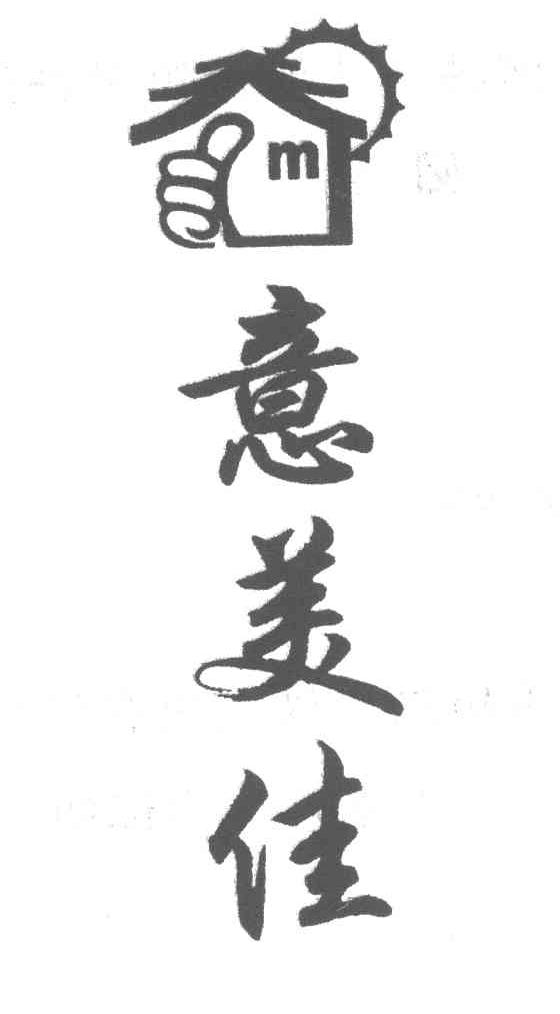 m
意美佳